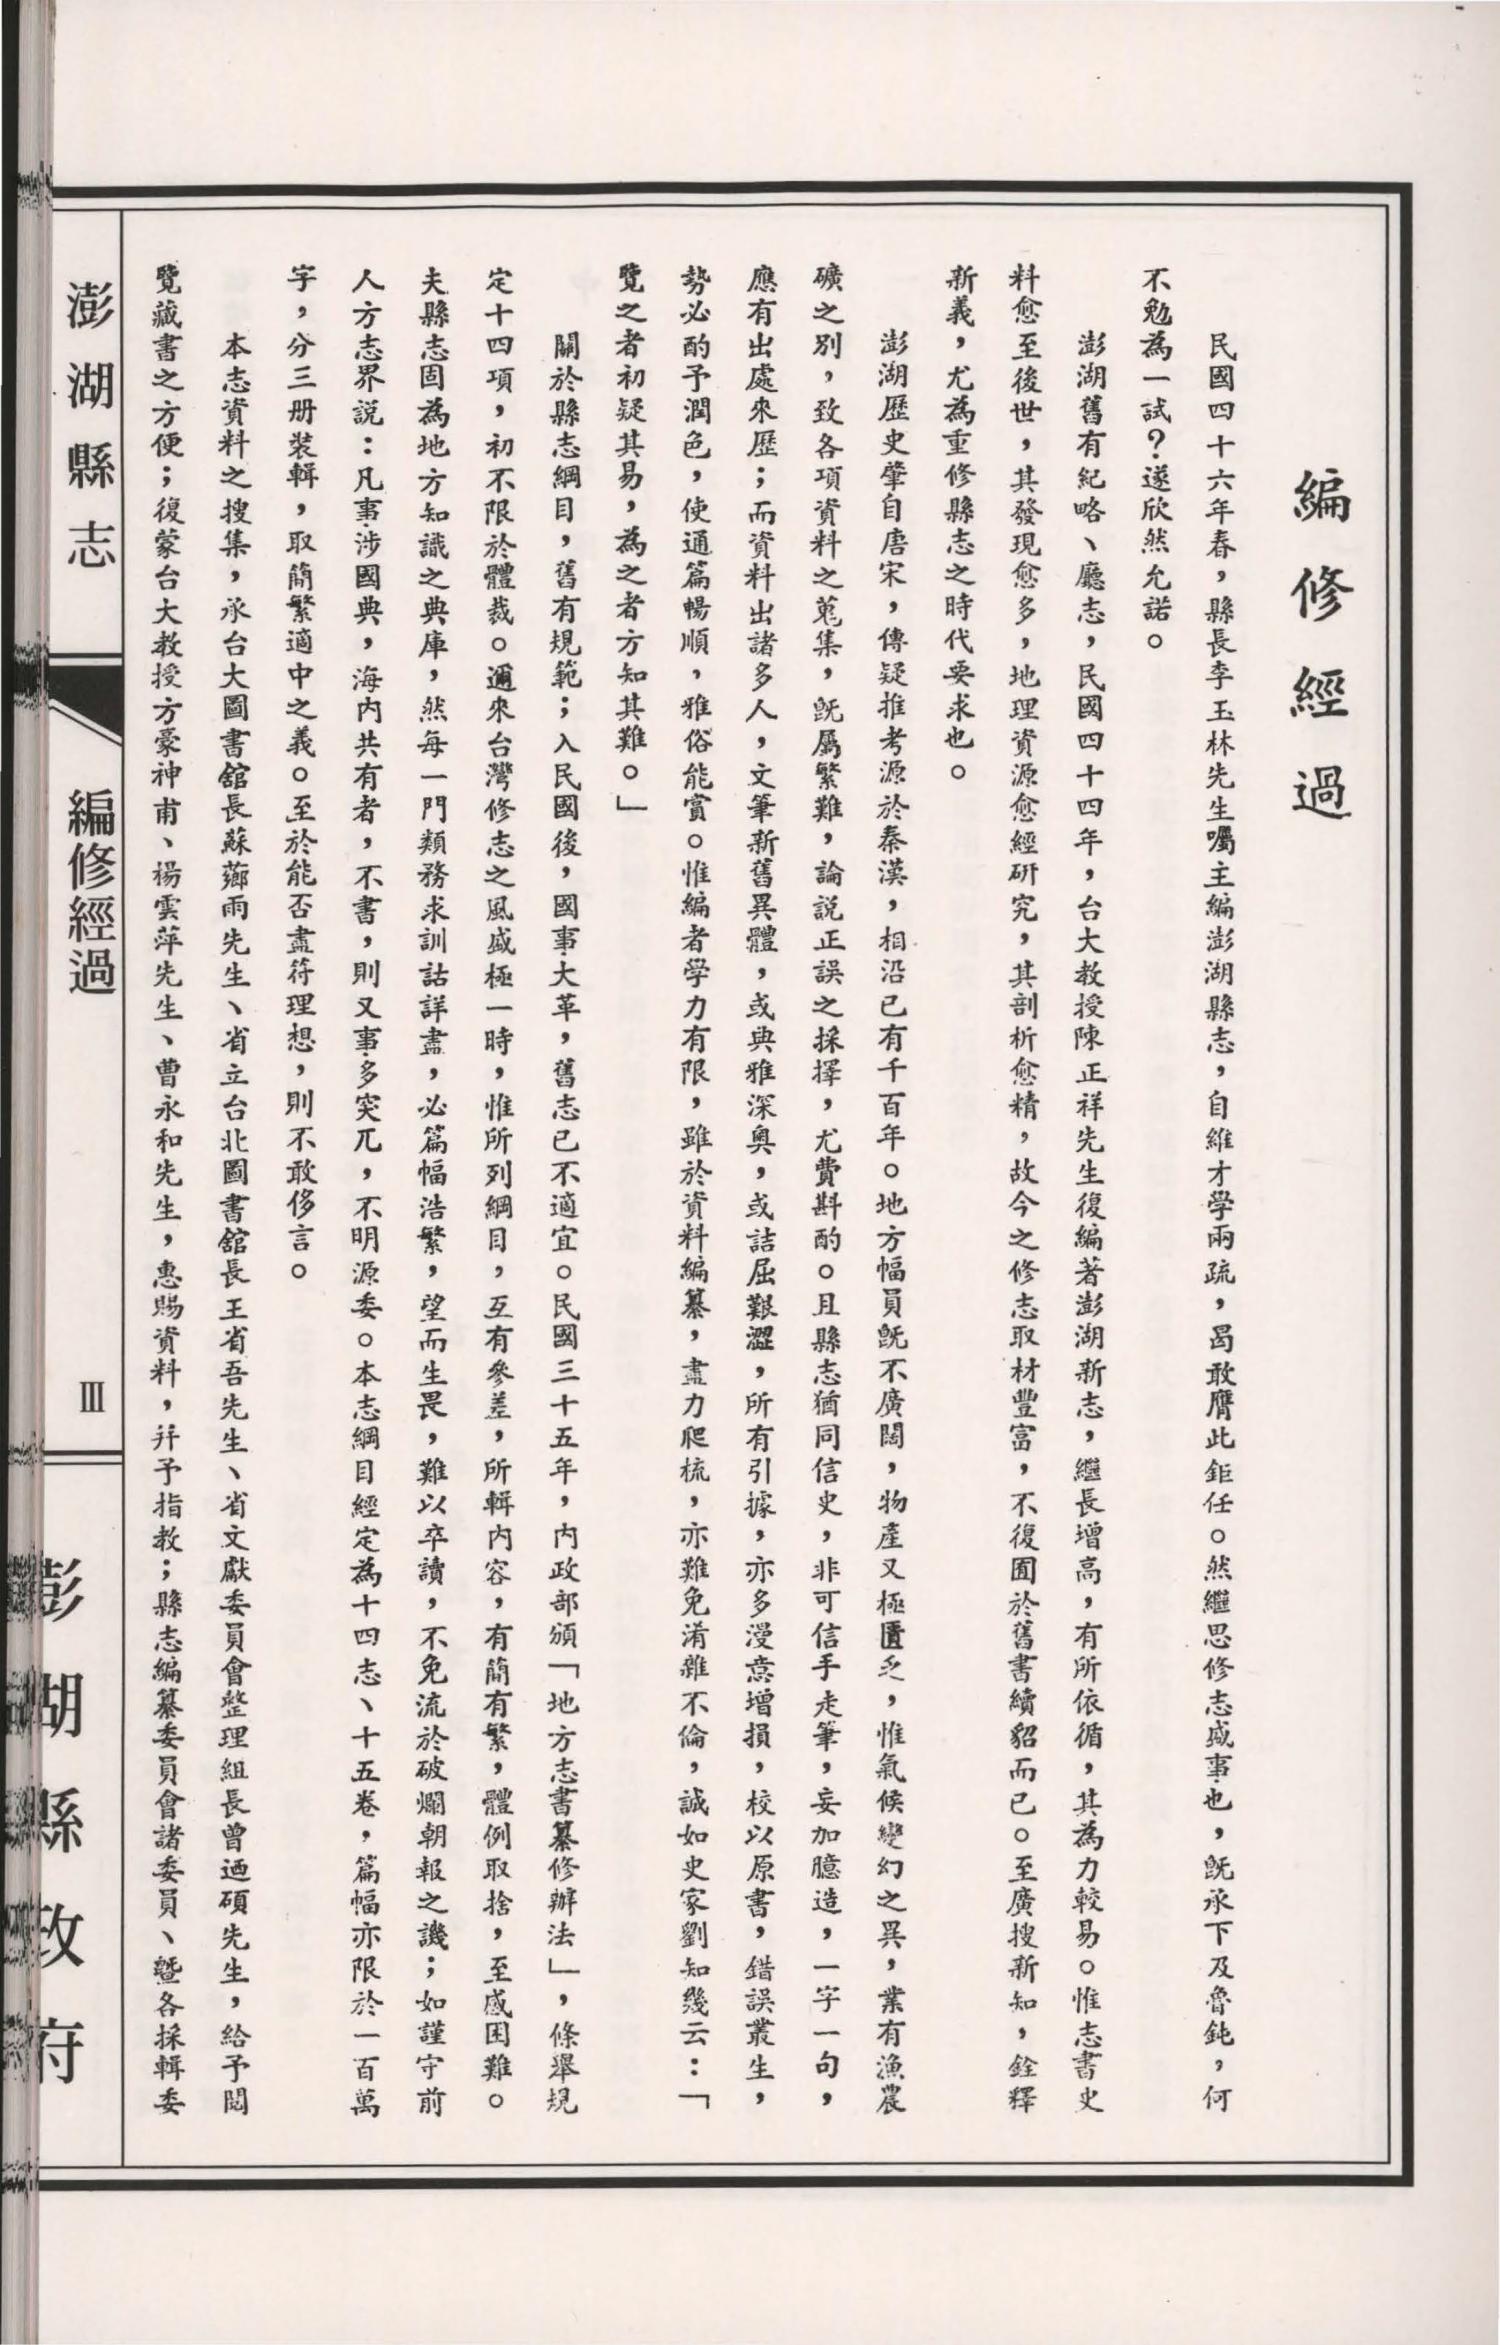 編修經過
民國四十六年春，縣長李玉林先生囑主編澎湖縣志，自維才學兩疏，曷敢膺此鉅任。然繼思修志盛事也，既承下及魯鈍，何
不勉為一試？遂欣然允諾。
澎湖舊有紀略、廳志，民國四十四年，台大教授陳正祥先生復編著澎湖新志，繼長增高，有所依循，其為力較易。惟志書史
料愈至後世，其發現愈多，地理資源愈經研究，其剖析愈精，故今之修志取材豐富，不復囿於舊書續貂而已。至廣搜新知，銓釋
新義，尤為重修縣志之時代要求也。
澎湖歷史肇自唐宋，傳疑推考源於秦漢，相沿已有千百年。地方幅員既不廣闊，物產又極匱乏，惟氣候變幻之異，業有漁農
礦之別，致各項資料之蒐集，既屬繁難，論說正誤之採擇，尤費斟酌。且縣志猶同信史，非可信手走筆，妄加臆造，一字一句，
應有出處來歷；而資料出諸多人，文筆新舊異體，或典雅深奧，或詰屈艱澀，所有引據，亦多漫意增損，校以原書，錯誤叢生，
勢必酌予潤色，使通篇暢順，雅俗能賞。惟編者學力有限，雖於資料編纂，盡力爬梳，亦難免淆雜不倫，誠如史家劉知幾云：「
覽之者初疑其易，為之者方知其難。」
關於縣志綱目，舊有規範；入民國後，國事大革，舊志已不適宜。民國三十五年，內政部頒「地方志書纂修辦法」，條舉規
定十四項，初不限於體裁。邇來台灣修志之風盛極一時，惟所列綱目，互有參差，所輯內容，有簡有繁，體例取捨，至感困難。
夫縣志固為地方知識之典庫，然每一門類務求訓詁詳盡，必篇幅浩繁，望而生畏，難以卒讀，不免流於破爛朝報之譏；如謹守前
人方志界說：凡事涉國典，海內共有者，不書，則又事多突兀，不明源委。本志綱目經定為十四志、十五卷，篇幅亦限於一百萬
字，分三册裝輯，取簡繁適中之義。至於能否盡符理想，則不敢侈言。
本志資料之搜集，承台大圖書舘長蘇薌雨先生、省立台北圖書舘長王省吾先生、省文獻委員會整理組長曾迺碩先生，給予閱
覽藏書之方便；復蒙台大教授方豪神甫、楊雲萍先生、曹永和先生，惠賜資料，幷予指教；縣志編纂委員會諸委員、暨各採輯委
澎湖縣志
編修經過
III
澎湖縣政府